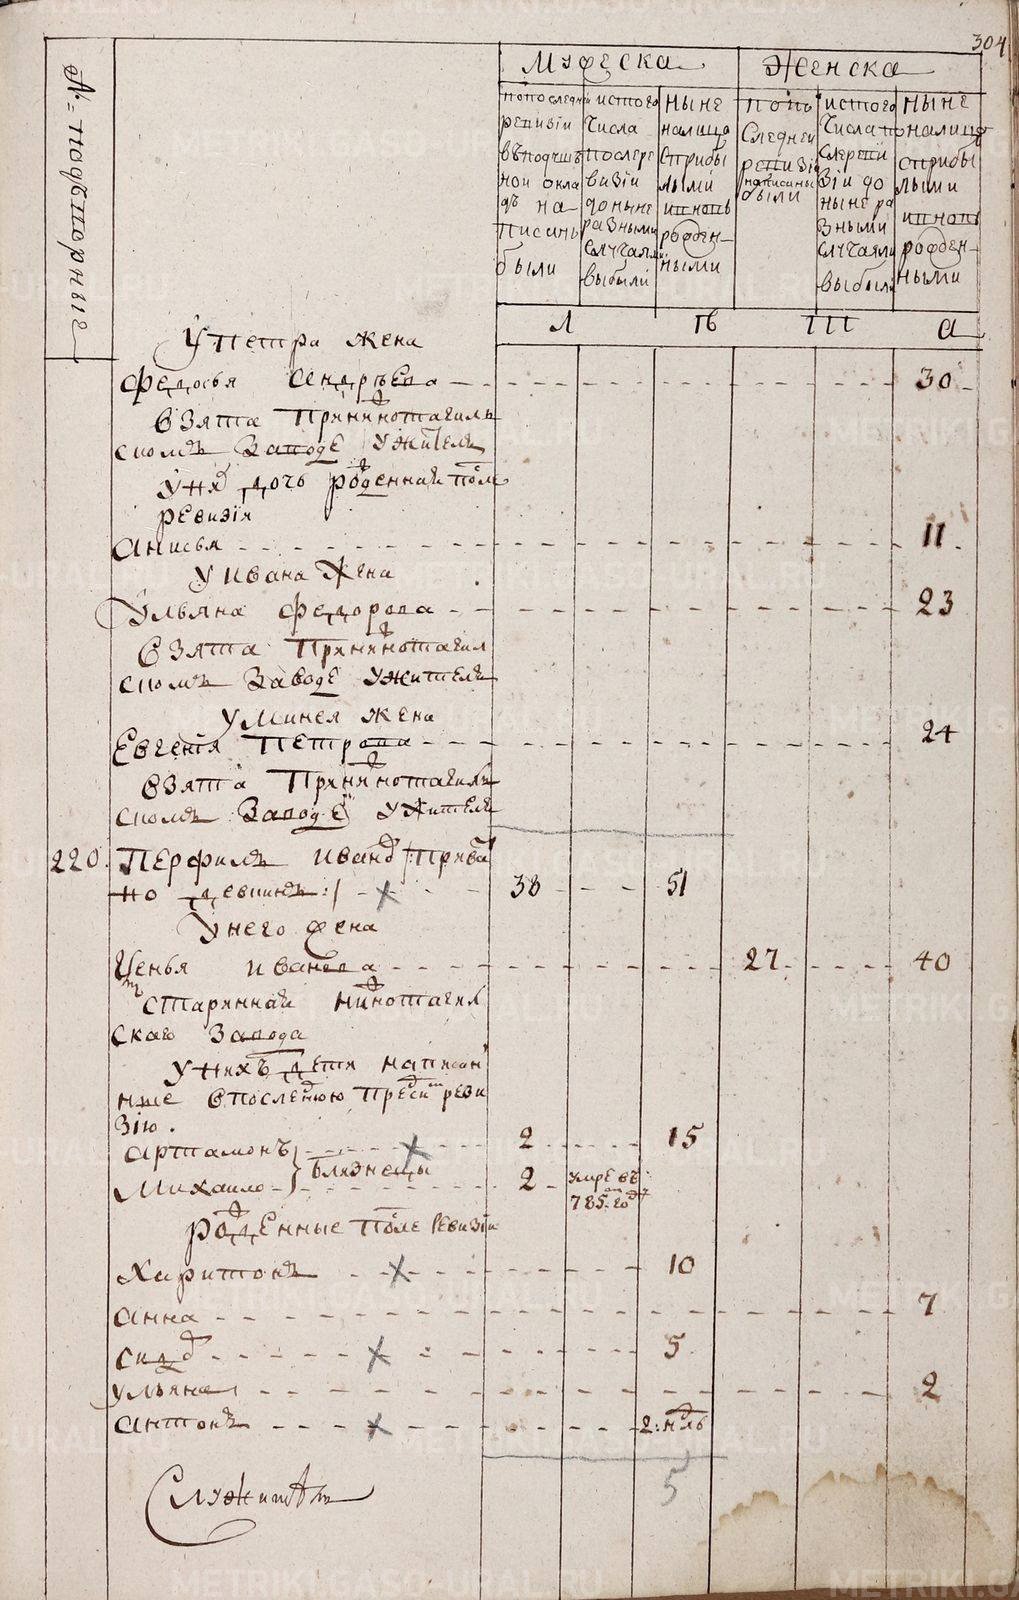 304
№ подвторные
Мужеска Женска
попоследнеи ревизіи вподушном окладѣ написаны были
истого числа послеревизіи доныне разными случаями выбыли
Ныне налицо сприбылыми ивновь рожденными
попоследнеи ревизіи написаны были
истого числа послеревизіи до ныне разными случаями выбыли
Ныне налицо сприбылыми ивновь рожденными
Л ІѢ ІІІ а
У Петра жена
Федосья 30
взята Принижнотагиль
скомъ Заводе Ужителя
Уних дочь рожденная после
ревизіи
анисья 11
У ивана Жена
Ульяна Федорова 23
взята Принижнотагил
скомъ Заводе Ужителя
У Минея жена
Евгенія Петрова 24
взята Принижнотагиль
скомъ Заводе Ужителя
220. Перфилъ иванов
38 51
Унего жена
ивановa 27 40
старинная нижнотагил
скаго Завода
Унихъ дети написан
ные впоследнюю пред сим реви
зію.
артамонъ 2 15
Михаило близнецы 2 умре въ 785 году
рожденные после Ревизіи
Харитонъ 10
анна 7
сидор 5
ульяна 2
антонъ 2: ндль
5
Служитель
METRIKI.GASO-URAL.RU